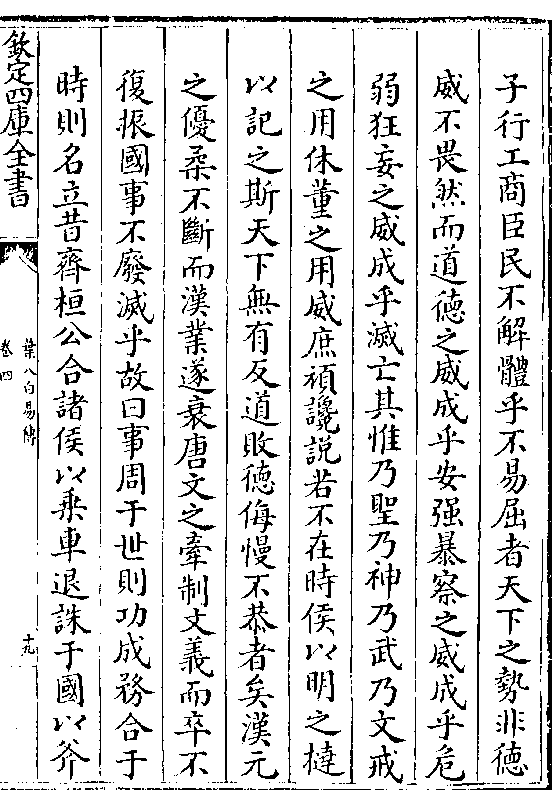 子行工商臣民不解體乎不易屈者天下之勢非德
威不畏然而道德之威成乎安强暴察之威成乎危
弱狂妄之威成乎滅亡其惟乃聖乃神乃武乃文戒
之用休董之用威庶頑讒説若不在時侯以明之撻
以記之斯天下無有反道敗德侮慢不恭者矣漢元
之優柔不斷而漢業遂衰唐文之牽制文義而卒不
復振國事不廢滅乎故曰事周于世則功成務合于
時則名立昔齊桓公合諸侯以乗車退誅于國以斧
欽定四庫全書
葉八白易傳
卷四
十九